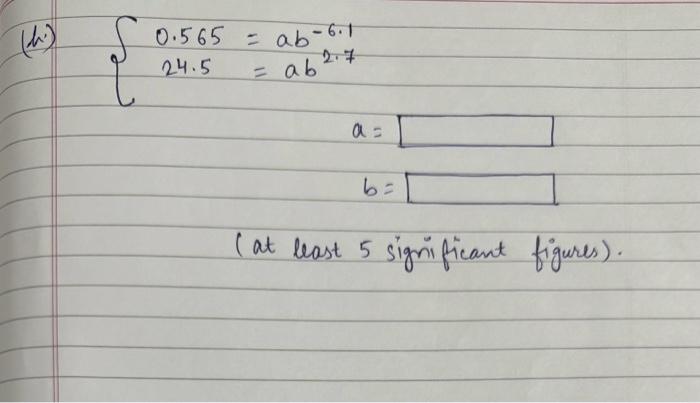 (h) 0.565 = ab^-6.1
24.5 = ab^2.7
a =
b =
(at least 5 significant figures).